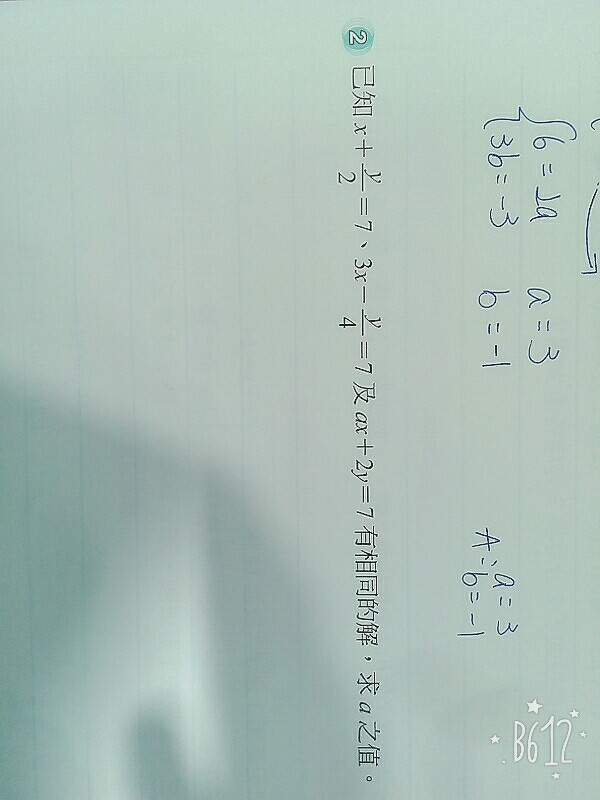 6 = 2a a = 3
3b = -3 b = -1
A: a = 3
b = -1
2 已知 x + y/2 = 7、3x - y/4 = 7 及 ax + 2y = 7 有相同的解，求 a 之值。
B612